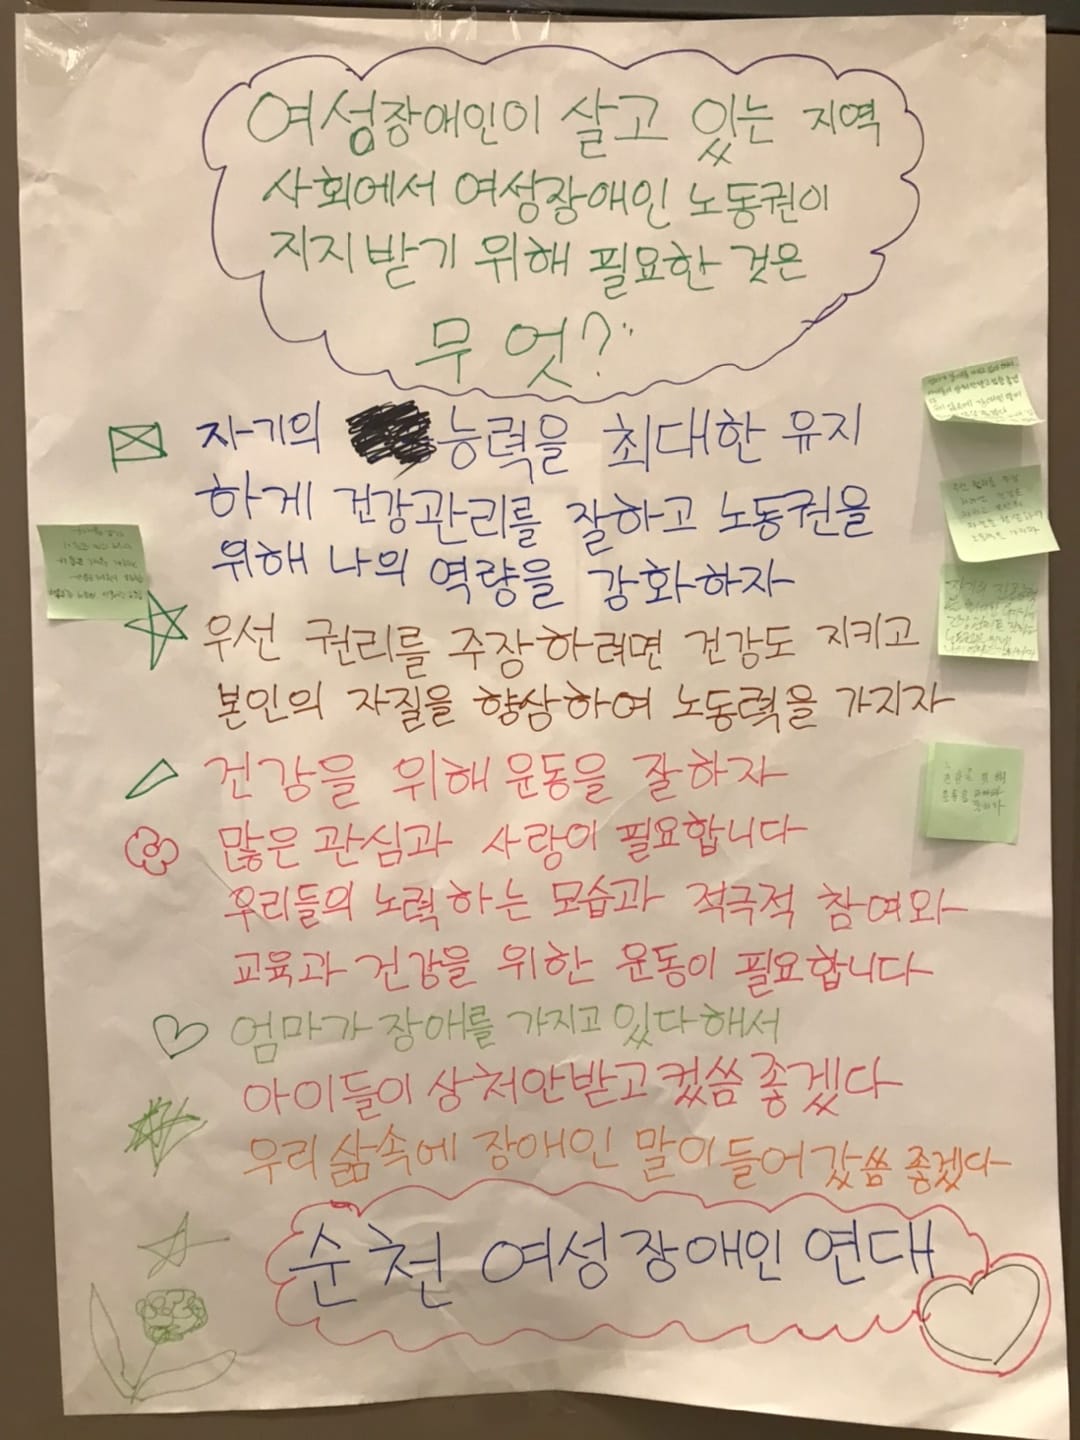 여성장애인이 살고 있는 지역
사회에서 여성장애인 노동권이
지지 받기 위해 필요한 것은
무엇?
자기의 능력을 최대한 유지
하게 건강관리를 잘하고 노동권을
위해 나의 역량을 강화하자
우선 권리를 주장하려면 건강도 지키고
본인의 자질을 향상하여 노동력을 가지자
건강을 위해 운동을 잘하자
많은 관심과 사랑이 필요합니다
우리들의 노력하는 모습과 적극적 참여와
교육과 건강을 위한 운동이 필요합니다
엄마가 장애를 가지고 있다해서
아이들이 상처안받고 컸씀 좋겠다
우리 삶속에 장애인 말이 들어갔씀 좋겠다
순천 여성장애인 연대